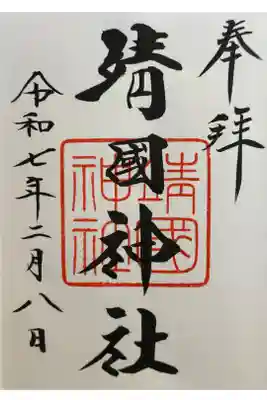 奉拝
靖國神社
靖國
神社
令和七年二月八日